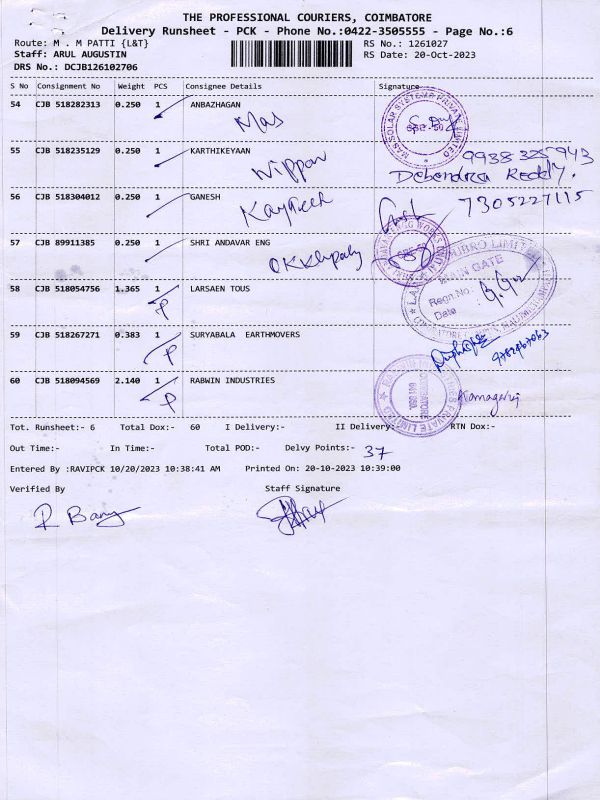 THE PROFESSIONAL COURIERS, COIMBATORE
Delivery Runsheet - PCK - Phone No.:0422-3505555 - Page No.:6
Route: M . M PATTI {L&T} RS No.: 1261027
Staff: ARUL AUGUSTIN RS Date: 20-Oct-2023
DRS No.: DCJB126102706
S No Consignment No Weight PCS Consignee Details Signature
54 CJB 518282313 0.250 1 ANBAZHAGAN
Mas
55 CJB 518235129 0.250 1 KARTHIKEYAAN
Nippon Debendra Reddy.
56 CJB 518304012 0.250 1 GANESH 7305227115
57 CJB 89911385 0.250 1 SHRI ANDAVAR ENG
58 CJB 518054756 1.365 1 LARSAEN TOUS
MAIN GATE
Regn.No.
Date
P
59 CJB 518267271 0.383 1 SURYABALA EARTHMOVERS
P
60 CJB 518094569 2.140 1 RABWIN INDUSTRIES
P
Tot. Runsheet:- 6 Total Dox:- 60 I Delivery:- II Delivery: RTN Dox:-
Out Time:- In Time:- Total POD:- Delvy Points:- 37
Entered By :RAVIPCK 10/20/2023 10:38:41 AM Printed On: 20-10-2023 10:39:00
Verified By Staff Signature